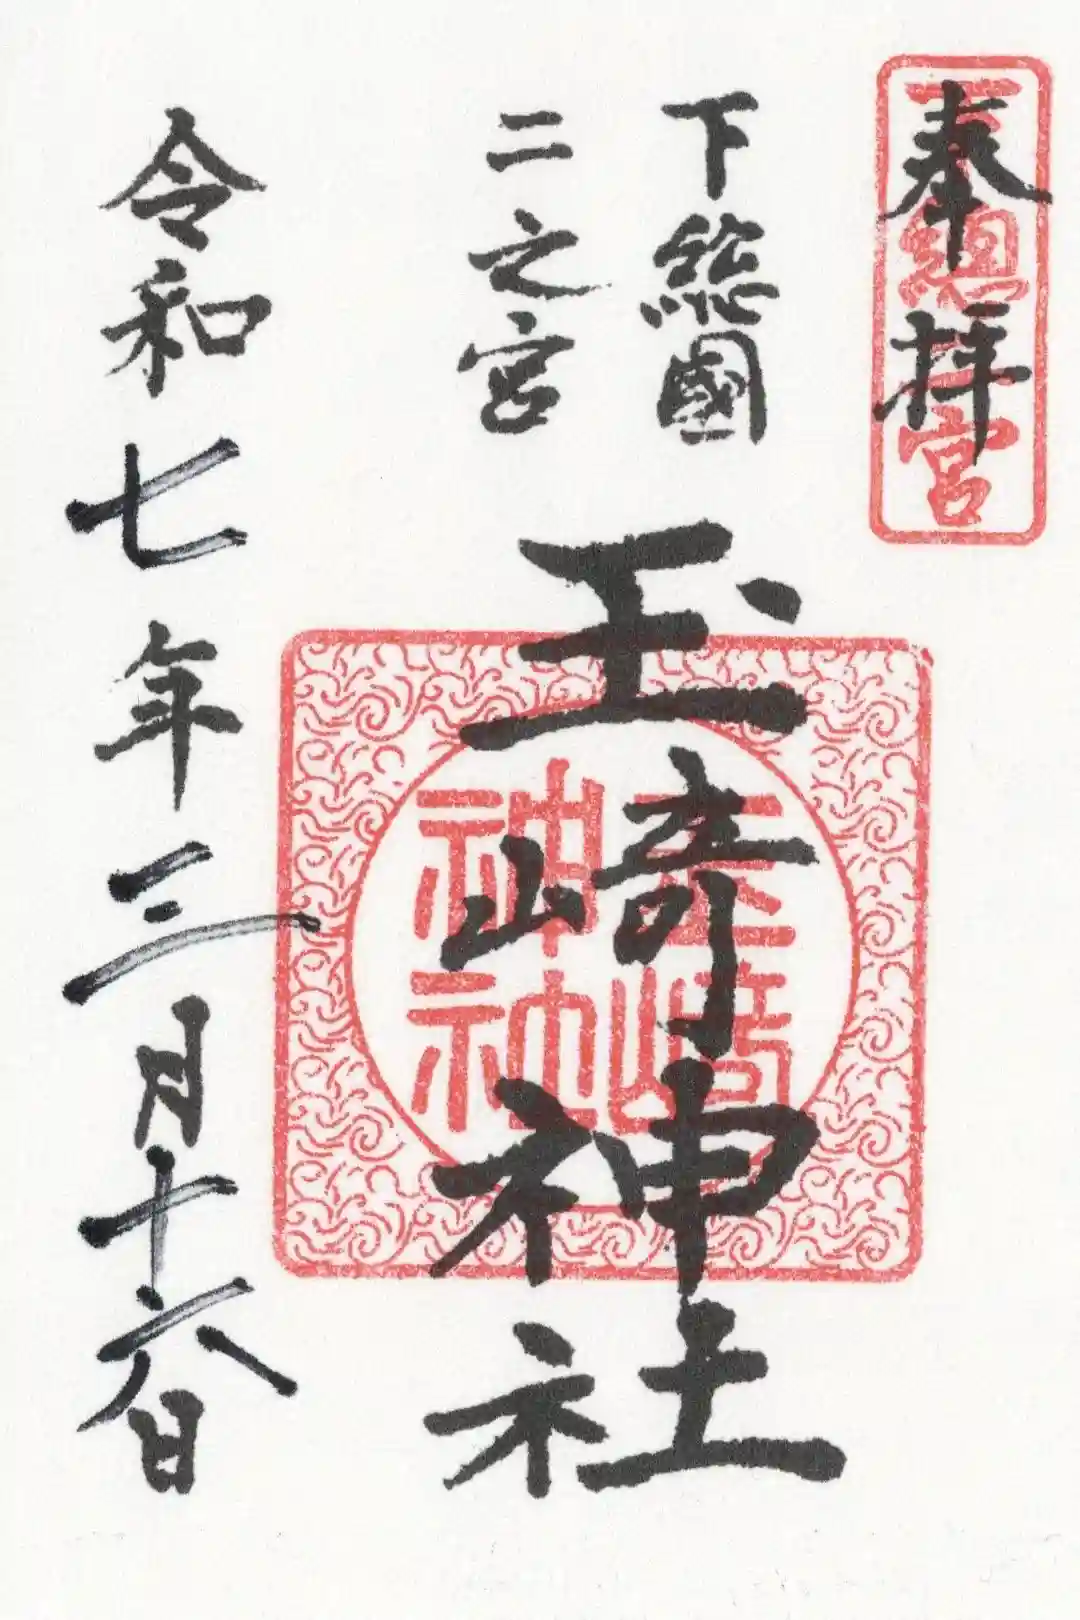 奉拝
下総二宮
下総國
二之宮
玉崎神社
玉崎神社
令和七年三月十六日